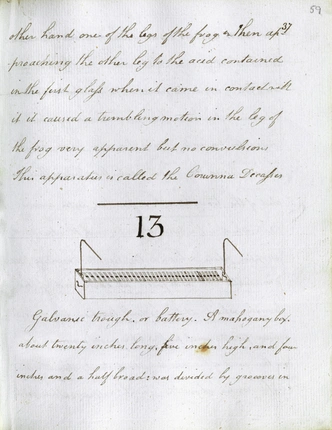 59
37
other hand one of the legs of the frog & then ap
proaching the other leg to the acid contained
in the first glass when it came in contact with
it it caused a trembling motion in the leg of
the frog very apparent but no convulsions
This apparatus is called the Couronna De
13
Galvanic trough, or battery. A mahogany box.
about twenty inches long, five inches high, and four
inches and a half broad: was divided by grooves in